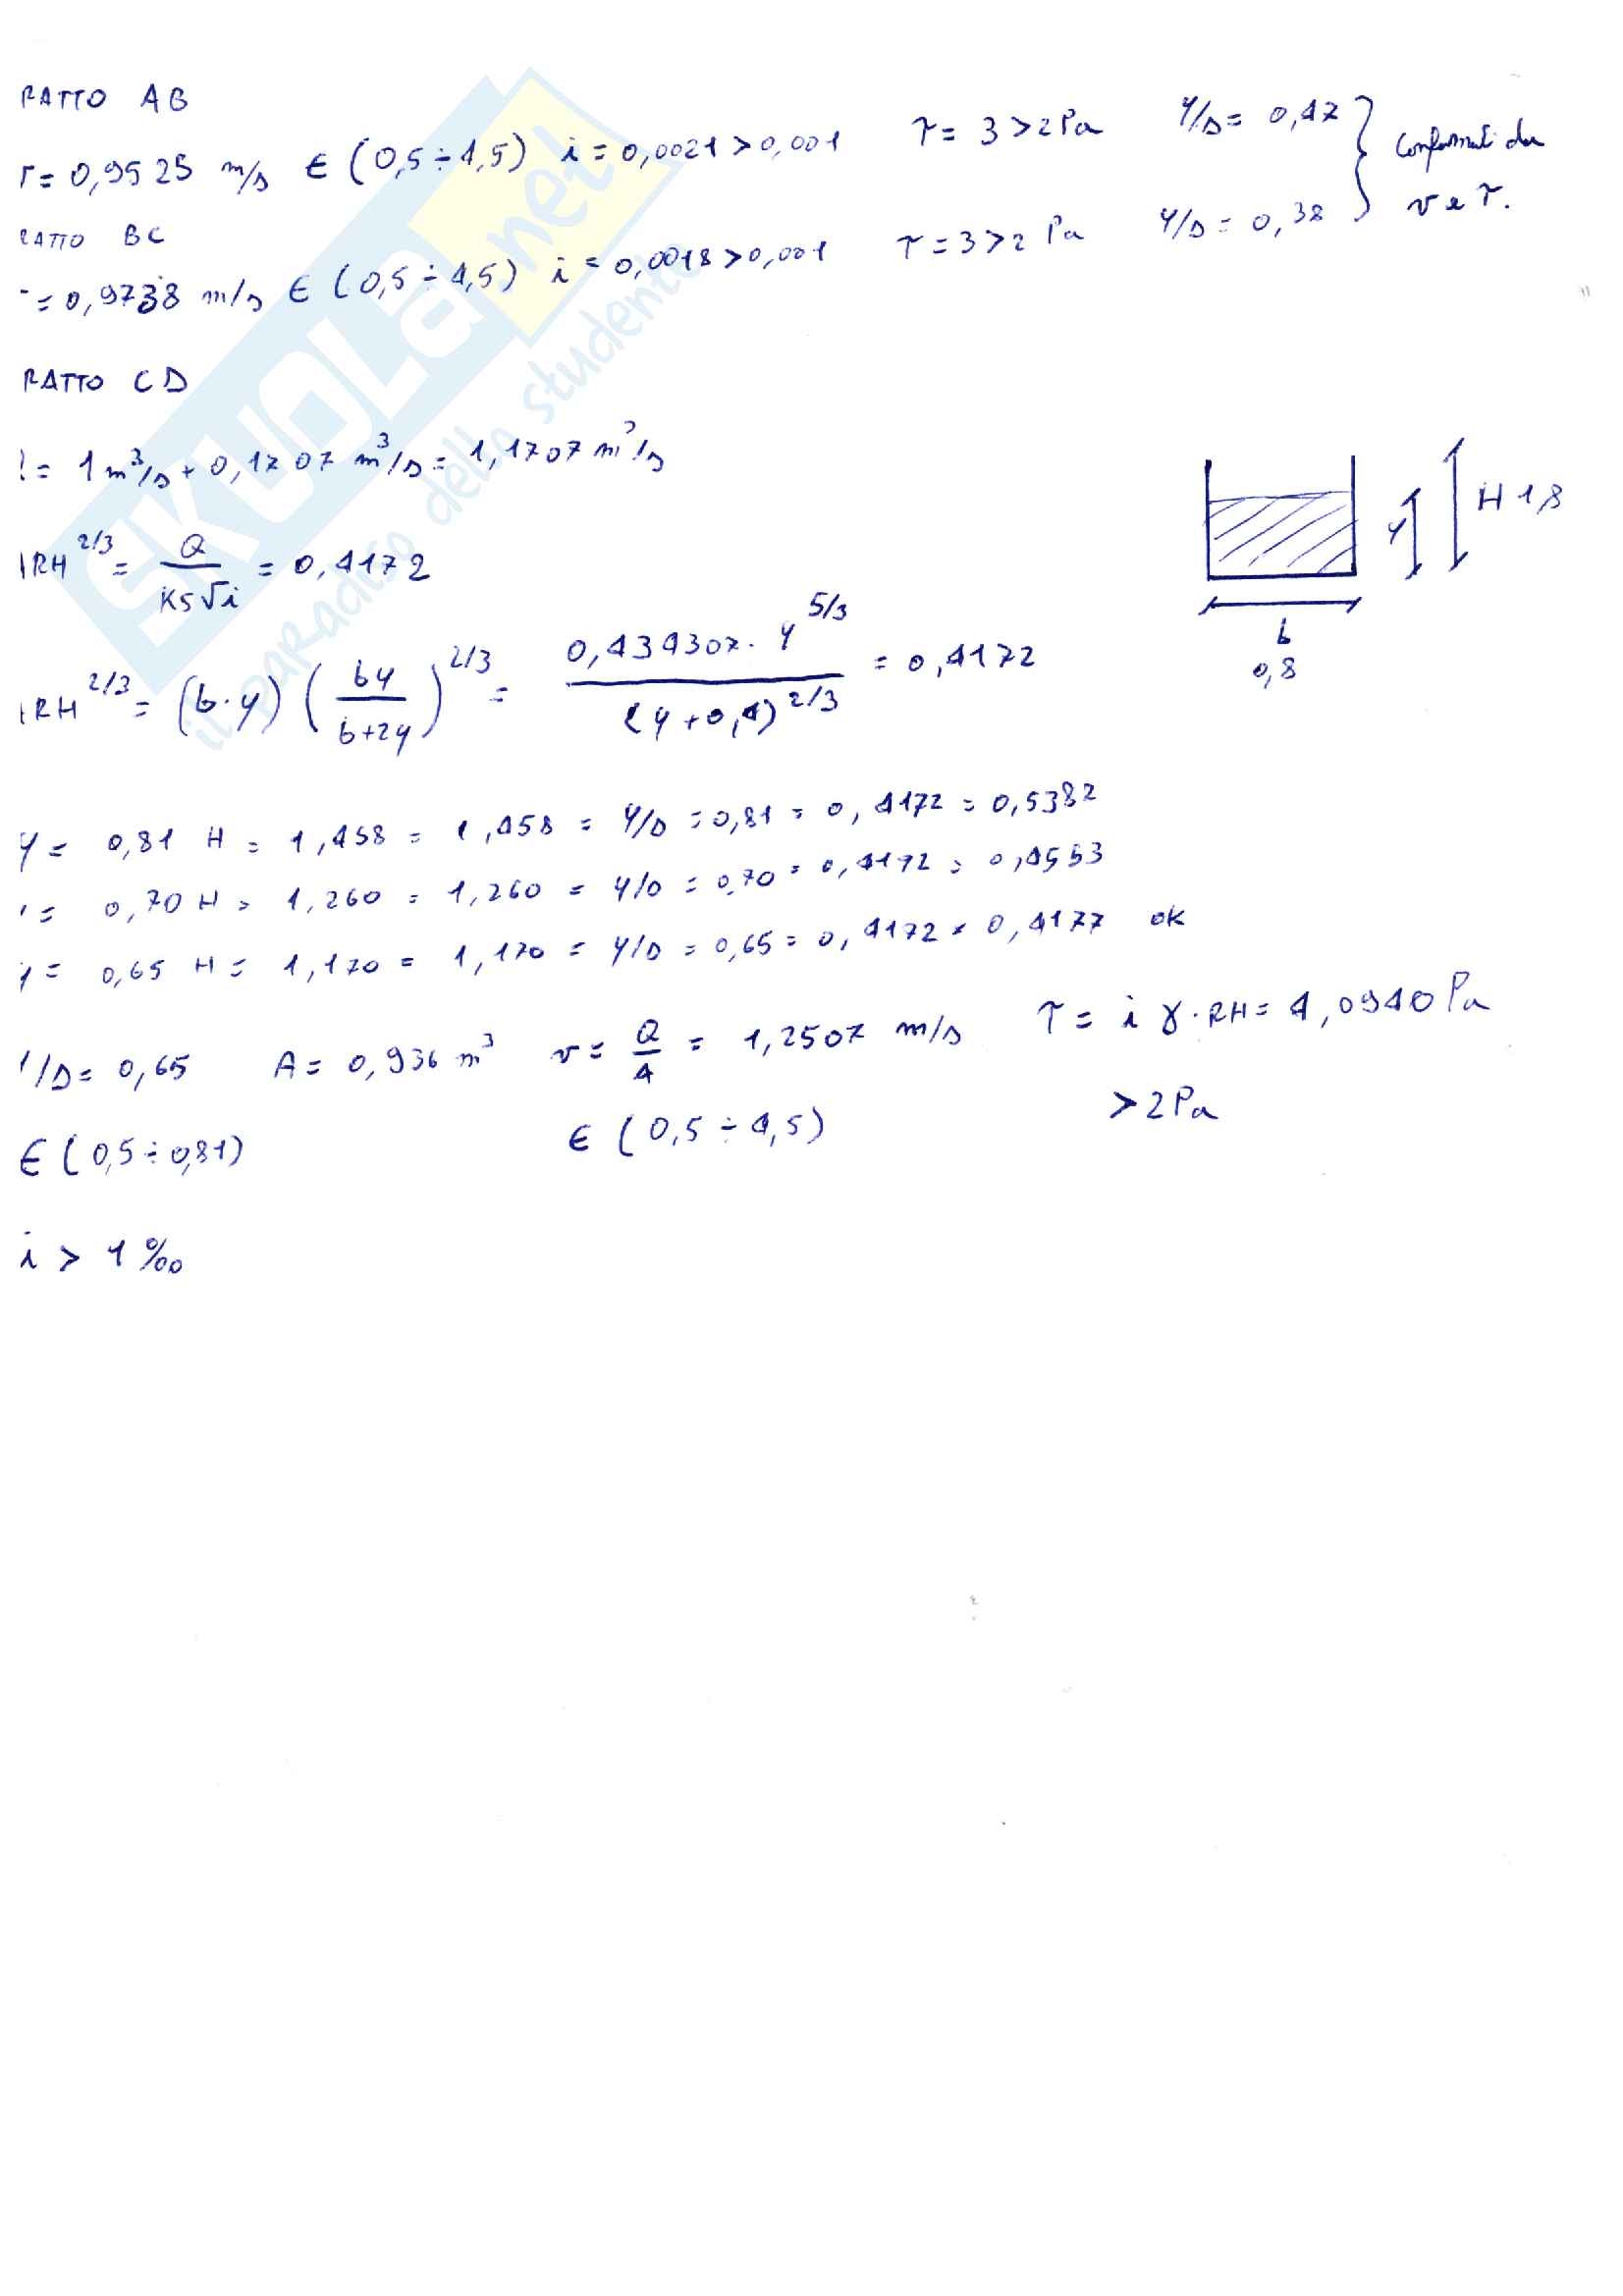 RATTO AB
r= 0,9525 m/s ∈ (0,5 ÷ 4,5) i = 0,0021 > 0,001 τ = 3 > 2 Pa Y/D = 0,47
RATTO BC
= 0,9738 m/s ∈ (0,5 ÷ 4,5) i = 0,0018 > 0,001 τ = 3 > 2 Pa Y/D = 0,38
v e τ.
RATTO CD
= 1 m³/s + 0,1707 m³/s = 1,1707 m³/s
RH^2/3 = Q / KS√i = 0,4172
RH^2/3 = (b·y) (by / b+2y)^2/3 = 0,434307 · Y^5/3 / (Y+0,4)^2/3 = 0,4172
Y H 1,8
b
0,8
Y = 0,81 H = 1,458 = 1,458 = Y/D = 0,81 = 0,4172 = 0,5382
= 0,70 H = 1,260 = 1,260 = Y/D = 0,70 = 0,4172 = 0,4553
y = 0,65 H = 1,170 = 1,170 = Y/D = 0,65 = 0,4172 ≈ 0,4177 OK
/D = 0,65 A = 0,936 m³ v = Q / A = 1,2507 m/s τ = i γ · RH = 4,0940 Pa
> 2 Pa
∈ (0,5 ÷ 0,81) ∈ (0,5 ÷ 4,5)
i > 1 ‰
SKUOLA.net
il paradiso dello studente